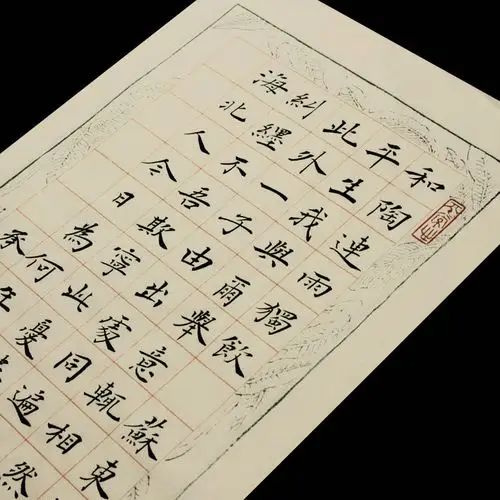 和陶連雨獨飲 蘇東
平生我與爾舉意輒相然
此外一子由出處同遍
糾纆不吾欺寧此憂
海北人今日為何